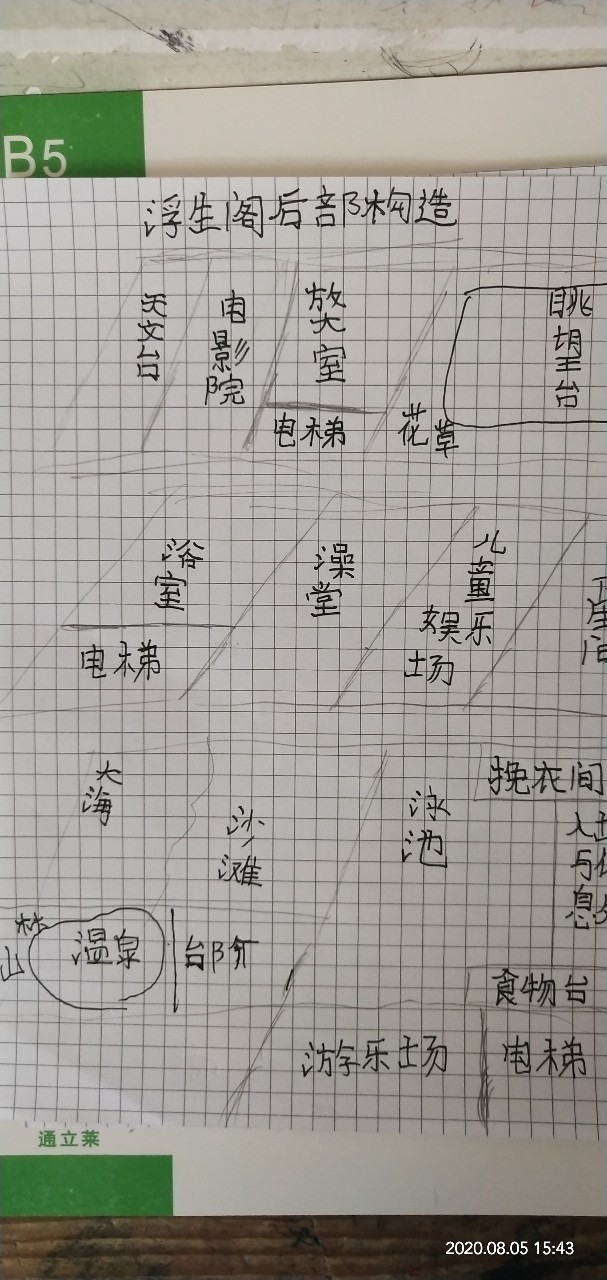 B5
浮生阁后部构造
天文台
电影院
电梯
花草
眺望台
浴室
澡堂
儿童
娱乐
场
电梯
大海
沙滩
泳池
食物台
山
林
温泉
台阶
游乐场
电梯
通立莱
2020.08.05 15:43